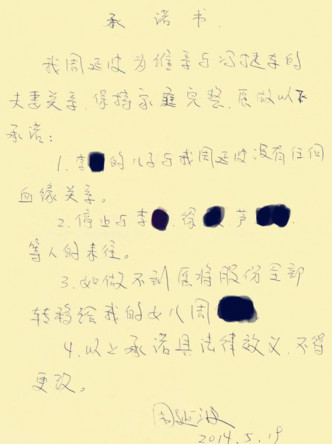 承诺书
我周延波为维系与冯建东的
夫妻关系,保持家庭完整,愿做以下
承诺:
1.李的儿子与我周延波没有任何
血缘关系。
2.停止与李,徐,芦
等人的来往。
3.如做不到愿将股份全部
转移给我的女儿周
4.以上承诺具法律效义,不得
更改。
周延波
2014.5.19